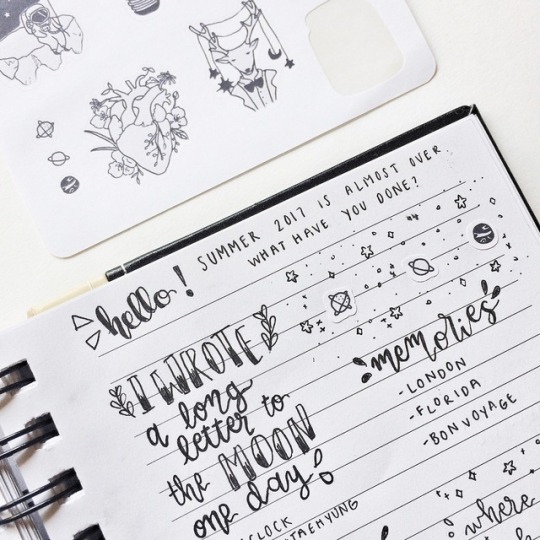 hello!
SUMMER 2017 IS ALMOST OVER
WHAT HAVE YOU DONE?
I WROTE
a long
letter to
the MOON
one day
memories
-LONDON
-FLORIDA
-BON VOYAGE
where